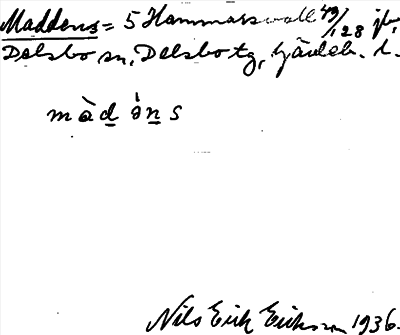 Maddens = 5 Hammarsvall 49/128 jfr,
Delsbo sn, Delsbo tg, Gävleb. l.
màdəns
Nils Erik Eriksson 1936.